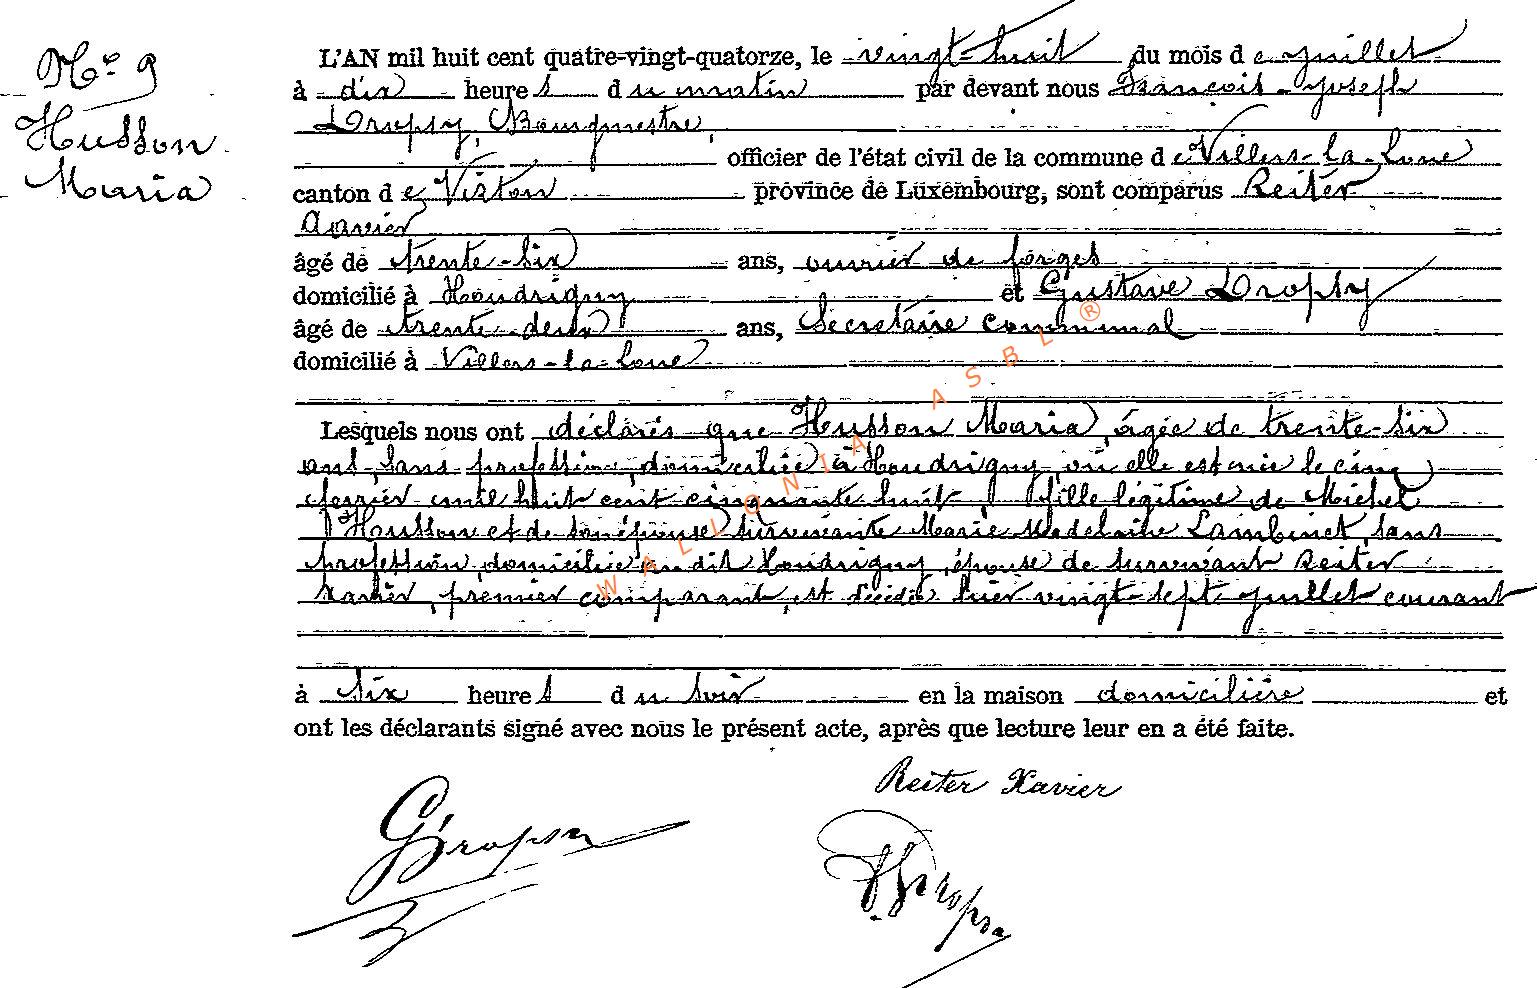 No 9
Husson
Maria
L'AN mil huit cent quatre-vingt-quatorze, le vingt-huit du mois de juillet
à dix heures du matin par devant nous François-Joseph
Dropsy, Bourgmestre,
officier de l'état civil de la commune de Villers-la-Loue
canton de Virton province de Luxembourg, sont comparus Reiter
Xavier
âgé de trente-six ans, ouvrier de forges
domicilié à Houdrigny et Gustave Dropsy
âgé de trente-deux ans, Secrétaire communal
domicilié à Villers-la-Loue
Lesquels nous ont déclarés que Husson Maria, âgée de trente-six
ans, sans profession, domiciliée à Houdrigny, où elle est née le cinq
février mil huit cent cinquante huit, fille légitime de Michel
Husson et de son épouse survivante Marie Madelaine Lambinet, sans
profession, domiciliée au dit Houdrigny, épouse de survivant Reiter
Xavier, premier comparant, est décédée hier vingt-sept juillet courant
à six heures du soir en la maison domicilière et
ont les déclarants signé avec nous le présent acte, après que lecture leur en a été faite.
Reiter Xavier
GDropsy
FJDropsy
WALLONIA ASBL®